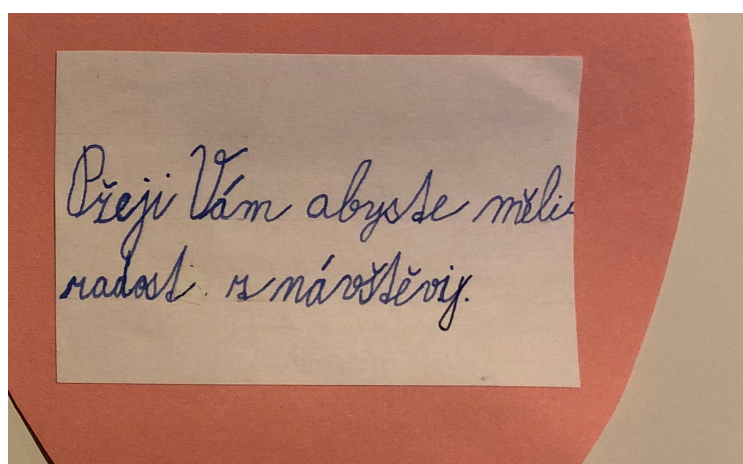 Přeji Vám abyste měli
radost z návštěvy.